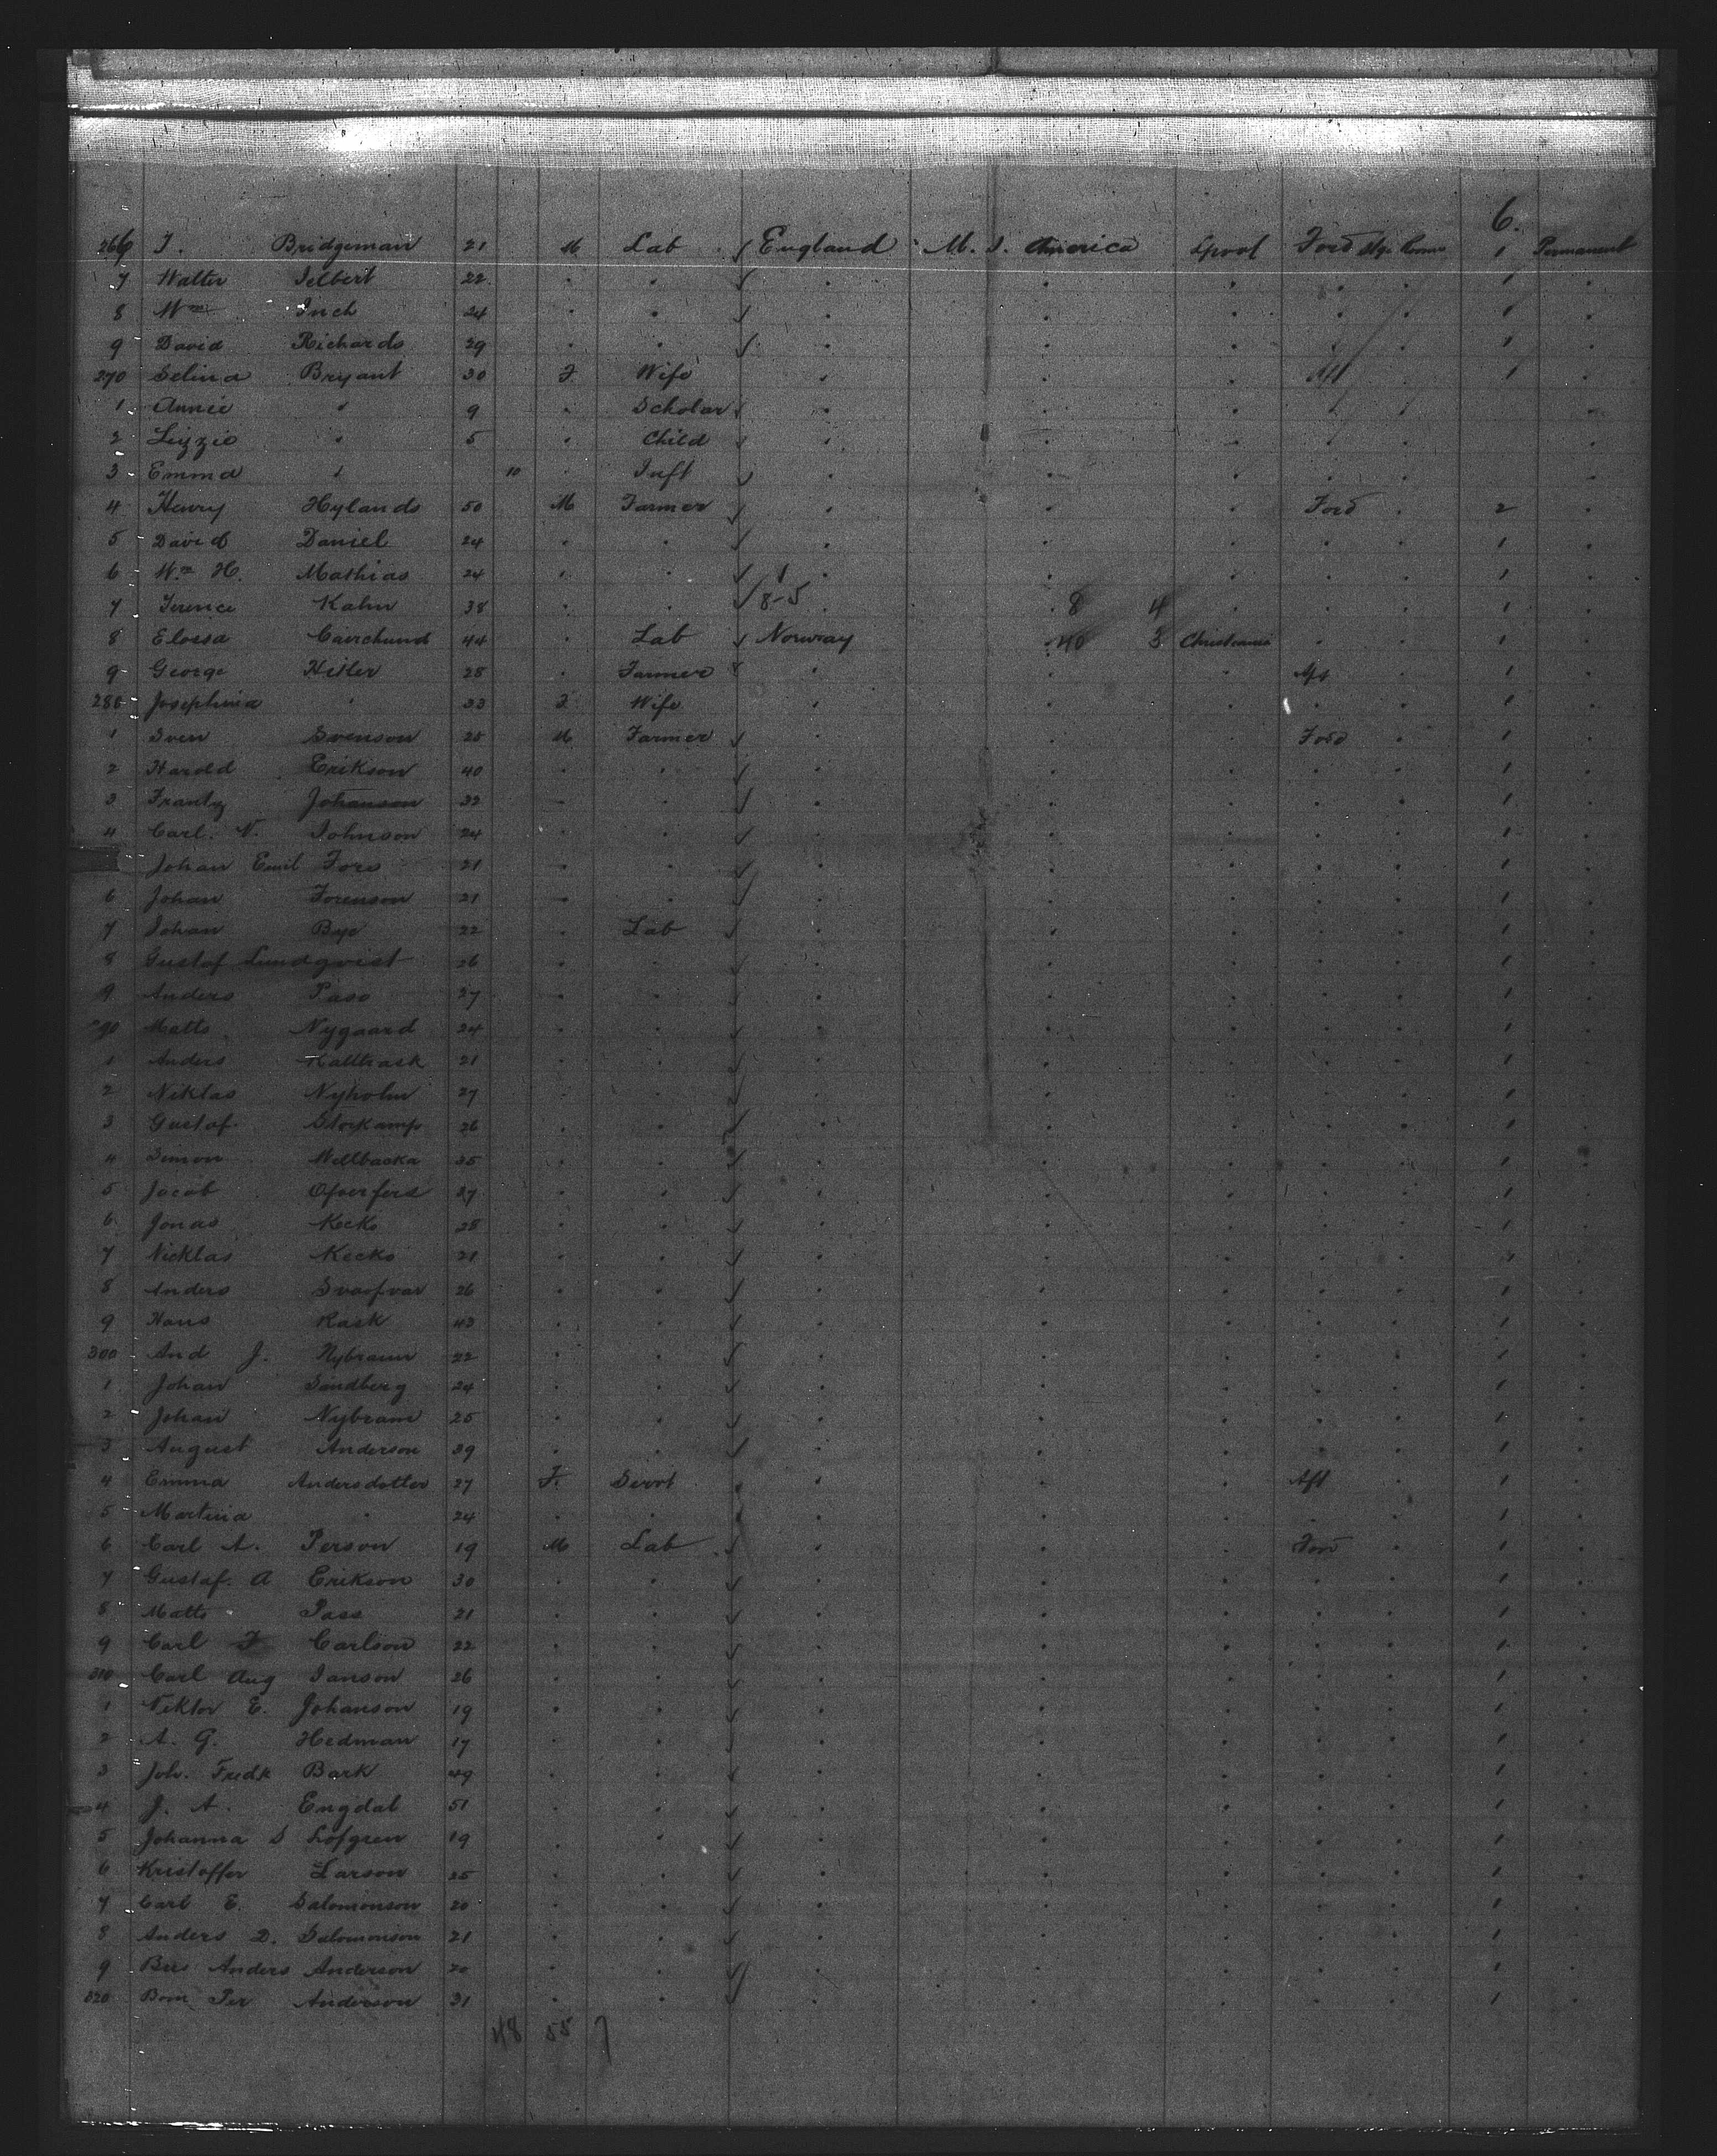 6.
266 J. Bridgeman 21 M Lab England U. S. America Lpool Ford Stge Room 1 Permanent
7 Walter Jelbert 22 1
8 Wm Inch 24 1
9 David Richards 29 1
270 Selina Bryant 30 F Wife Aft 1
1 Annie " 9 Scholar
2 Lizzie " 5 Child
3 Emma " 10 Inft
4 Henry Hylands 50 M Farmer Ford 2
5 David Daniel 24 1
6 Wm H. Mathias 24 1
7 Terence Kahn 38 8-5 8 4 1
8 Lab Norway 40 3 Christiania 1
9 George Hiller 28 Farmer Aft 1
280 Josephina " 33 F Wife 1
1 Sven Svenson 20 M Farmer Ford 1
2 Harold Erikson 40 1
3 Frantz Johanson 32 1
4 Carl. V. Johnson 24 1
Johan Emil Fors 21 1
6 Johan Forenson 21 1
7 Johan Bye 22 Lab 1
8 Gustaf Lundqvist 26 1
9 Anders Pass 27 1
290 Matts Nygaard 24 1
1 Anders Kalltrask 21 1
2 Niklas Nyholm 27 1
3 Gustaf Storkamp 26 1
4 Simon 35 1
5 Jacob 27 1
6 Jonas Kecko 28 1
7 Nicklas Kecko 21 1
8 Anders 26 1
9 Hans Rask 43 1
300 And J. 22 1
1 Johan Sandberg 24 1
2 Johan 25 1
3 August Anderson 39 1
4 Emma Andersdotter 27 F. Servt Aft 1
5 Martina " 24 1
6 Carl A. Person 19 M Lab Ford 1
7 Gustaf. A Erikson 30 1
8 Matts Pass 21 1
9 Carl F Carlson 22 1
310 Carl Aug Janson 26 1
1 Viktor E. Johanson 19 1
2 A. G. Hedman 17 1
3 Joh. Fredk Bark 49 1
4 J. A. Engdal 51 1
5 Johanna S Lofgren 19 1
6 Kristoffer Larson 25 1
7 Carl E. Salomonson 20 1
8 Anders D. Salomonson 21 1
9 Anders Anderson 20 1
320 Per Anderson 31 1
48 55 7